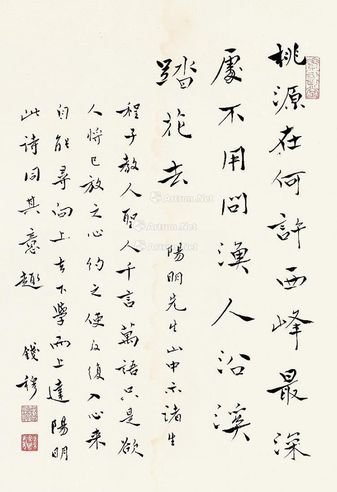 桃源在何許西峰最深
處不用問漁人沿溪
踏花去
陽明先生山中示諸生
程子教人聖人千言萬語只是欲
人將已放之心約之使反復入心來
自能尋向上去下學而上達陽明
此詩同其意趣
錢穆
Artram.Net